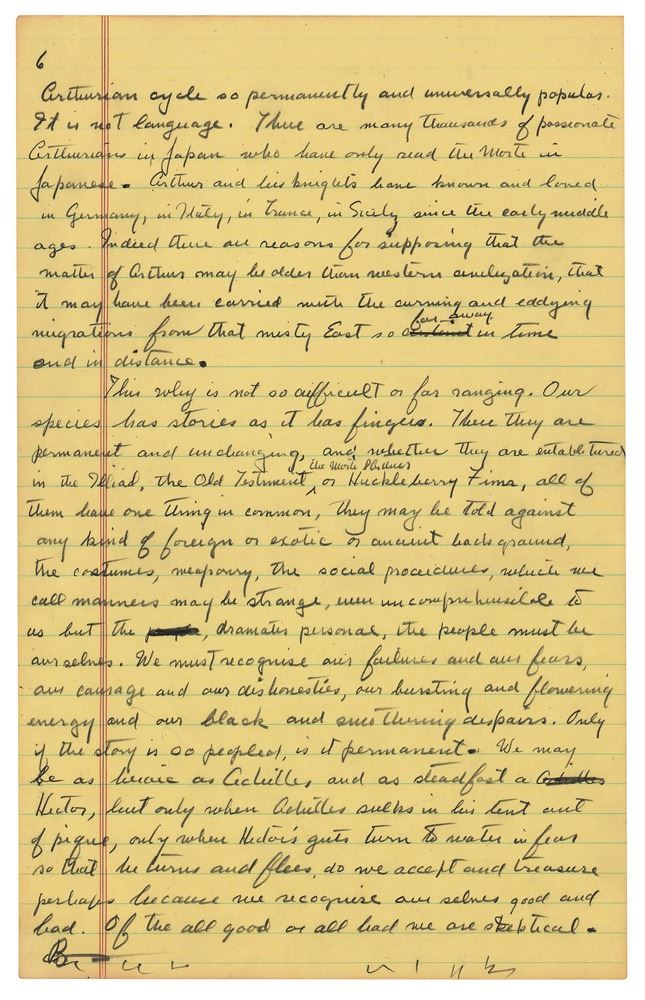 6
Arthurian cycle so permanently and universally popular.
It is not language. There are many thousands of passionate
Arthurians in Japan who have only read the Morte in
Japanese. Arthur and his knights have known and loved
in Germany, in Italy, in France, in Sicily since the early middle
ages. Indeed there are reasons for supposing that the
matter of Arthur may be older than western civilization, that
it may have been carried with the curving and eddying
migrations from that misty East so far-away in time
and in distance.
This why is not so difficult or far ranging. Our
species has stories as it has fingers. There they are
permanent and unchanging, and whether they are entabletured
the Morte d'Arthur
in the Illiad, the Old Testment, or Huckleberry Finn, all of
them have one thing in common, they may be told against
any kind of foreign or exotic or ancient background,
the costumes, weaponry, the social procedures, which we
call manners may be strange, even uncomprehensible to
us but the , dramatis personae, the people must be
ourselves. We must recognise our failures and our fears,
our courage and our dishonesties, our bursting and flowering
energy and our black and smothering despairs. Only
if the story is so peopled, is it permanent. We may
be as heroic as Achilles, and as steadfast a Achilles
Hector, but only when Achilles sulks in his tent out
of pique, only when Hector's guts turn to water in fear
so that he turns and flees, do we accept and treasure
perhaps because we recognise our selves good and
bad. Of the all good or all bad we are skeptical.